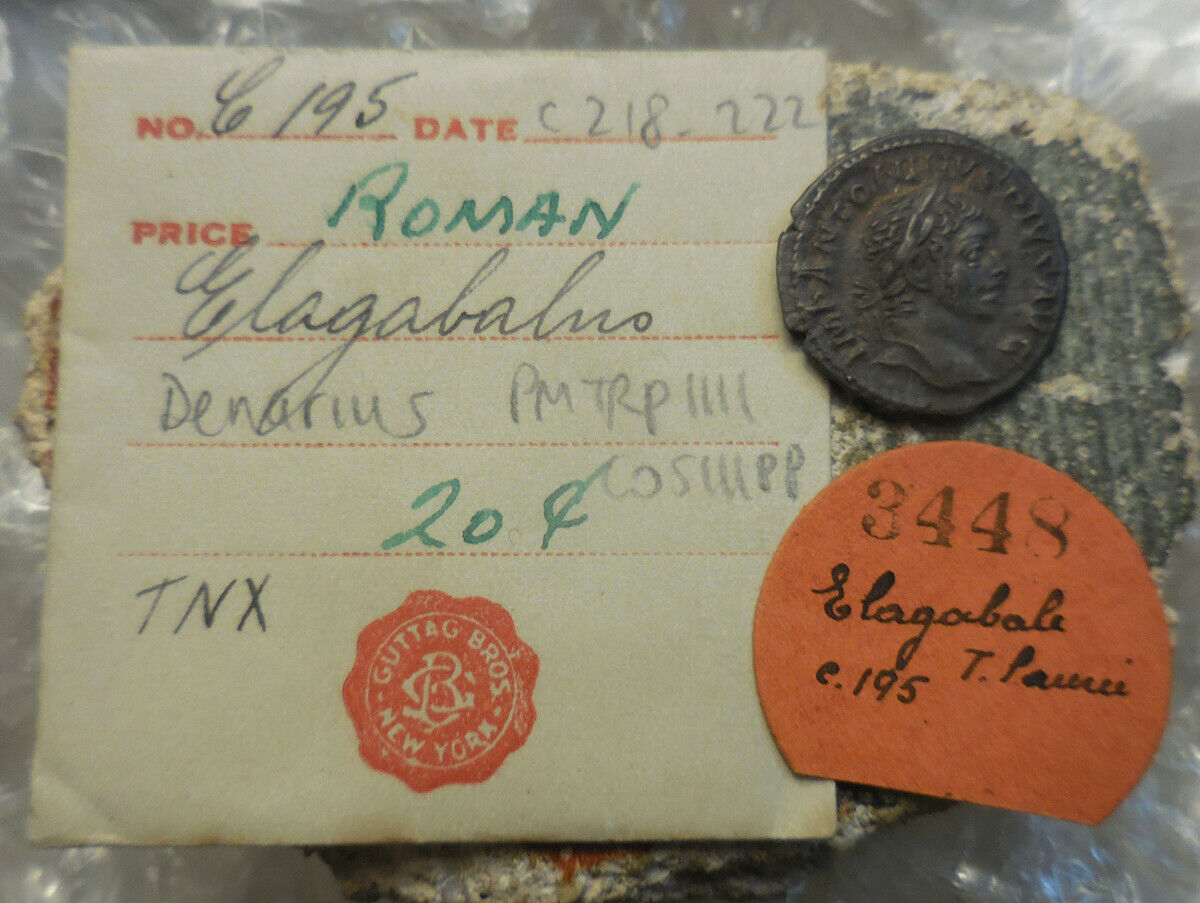 NO. C 195 DATE C 218-222
PRICE ROMAN
Elagabalus
Denarius PMTRPIIII
COSIIIPP
20¢
TNX
GUTTAG BROS.
NEW YORK
IMP ANTONINVS PIVS AVG
3448
Elagabale
c.195 T.